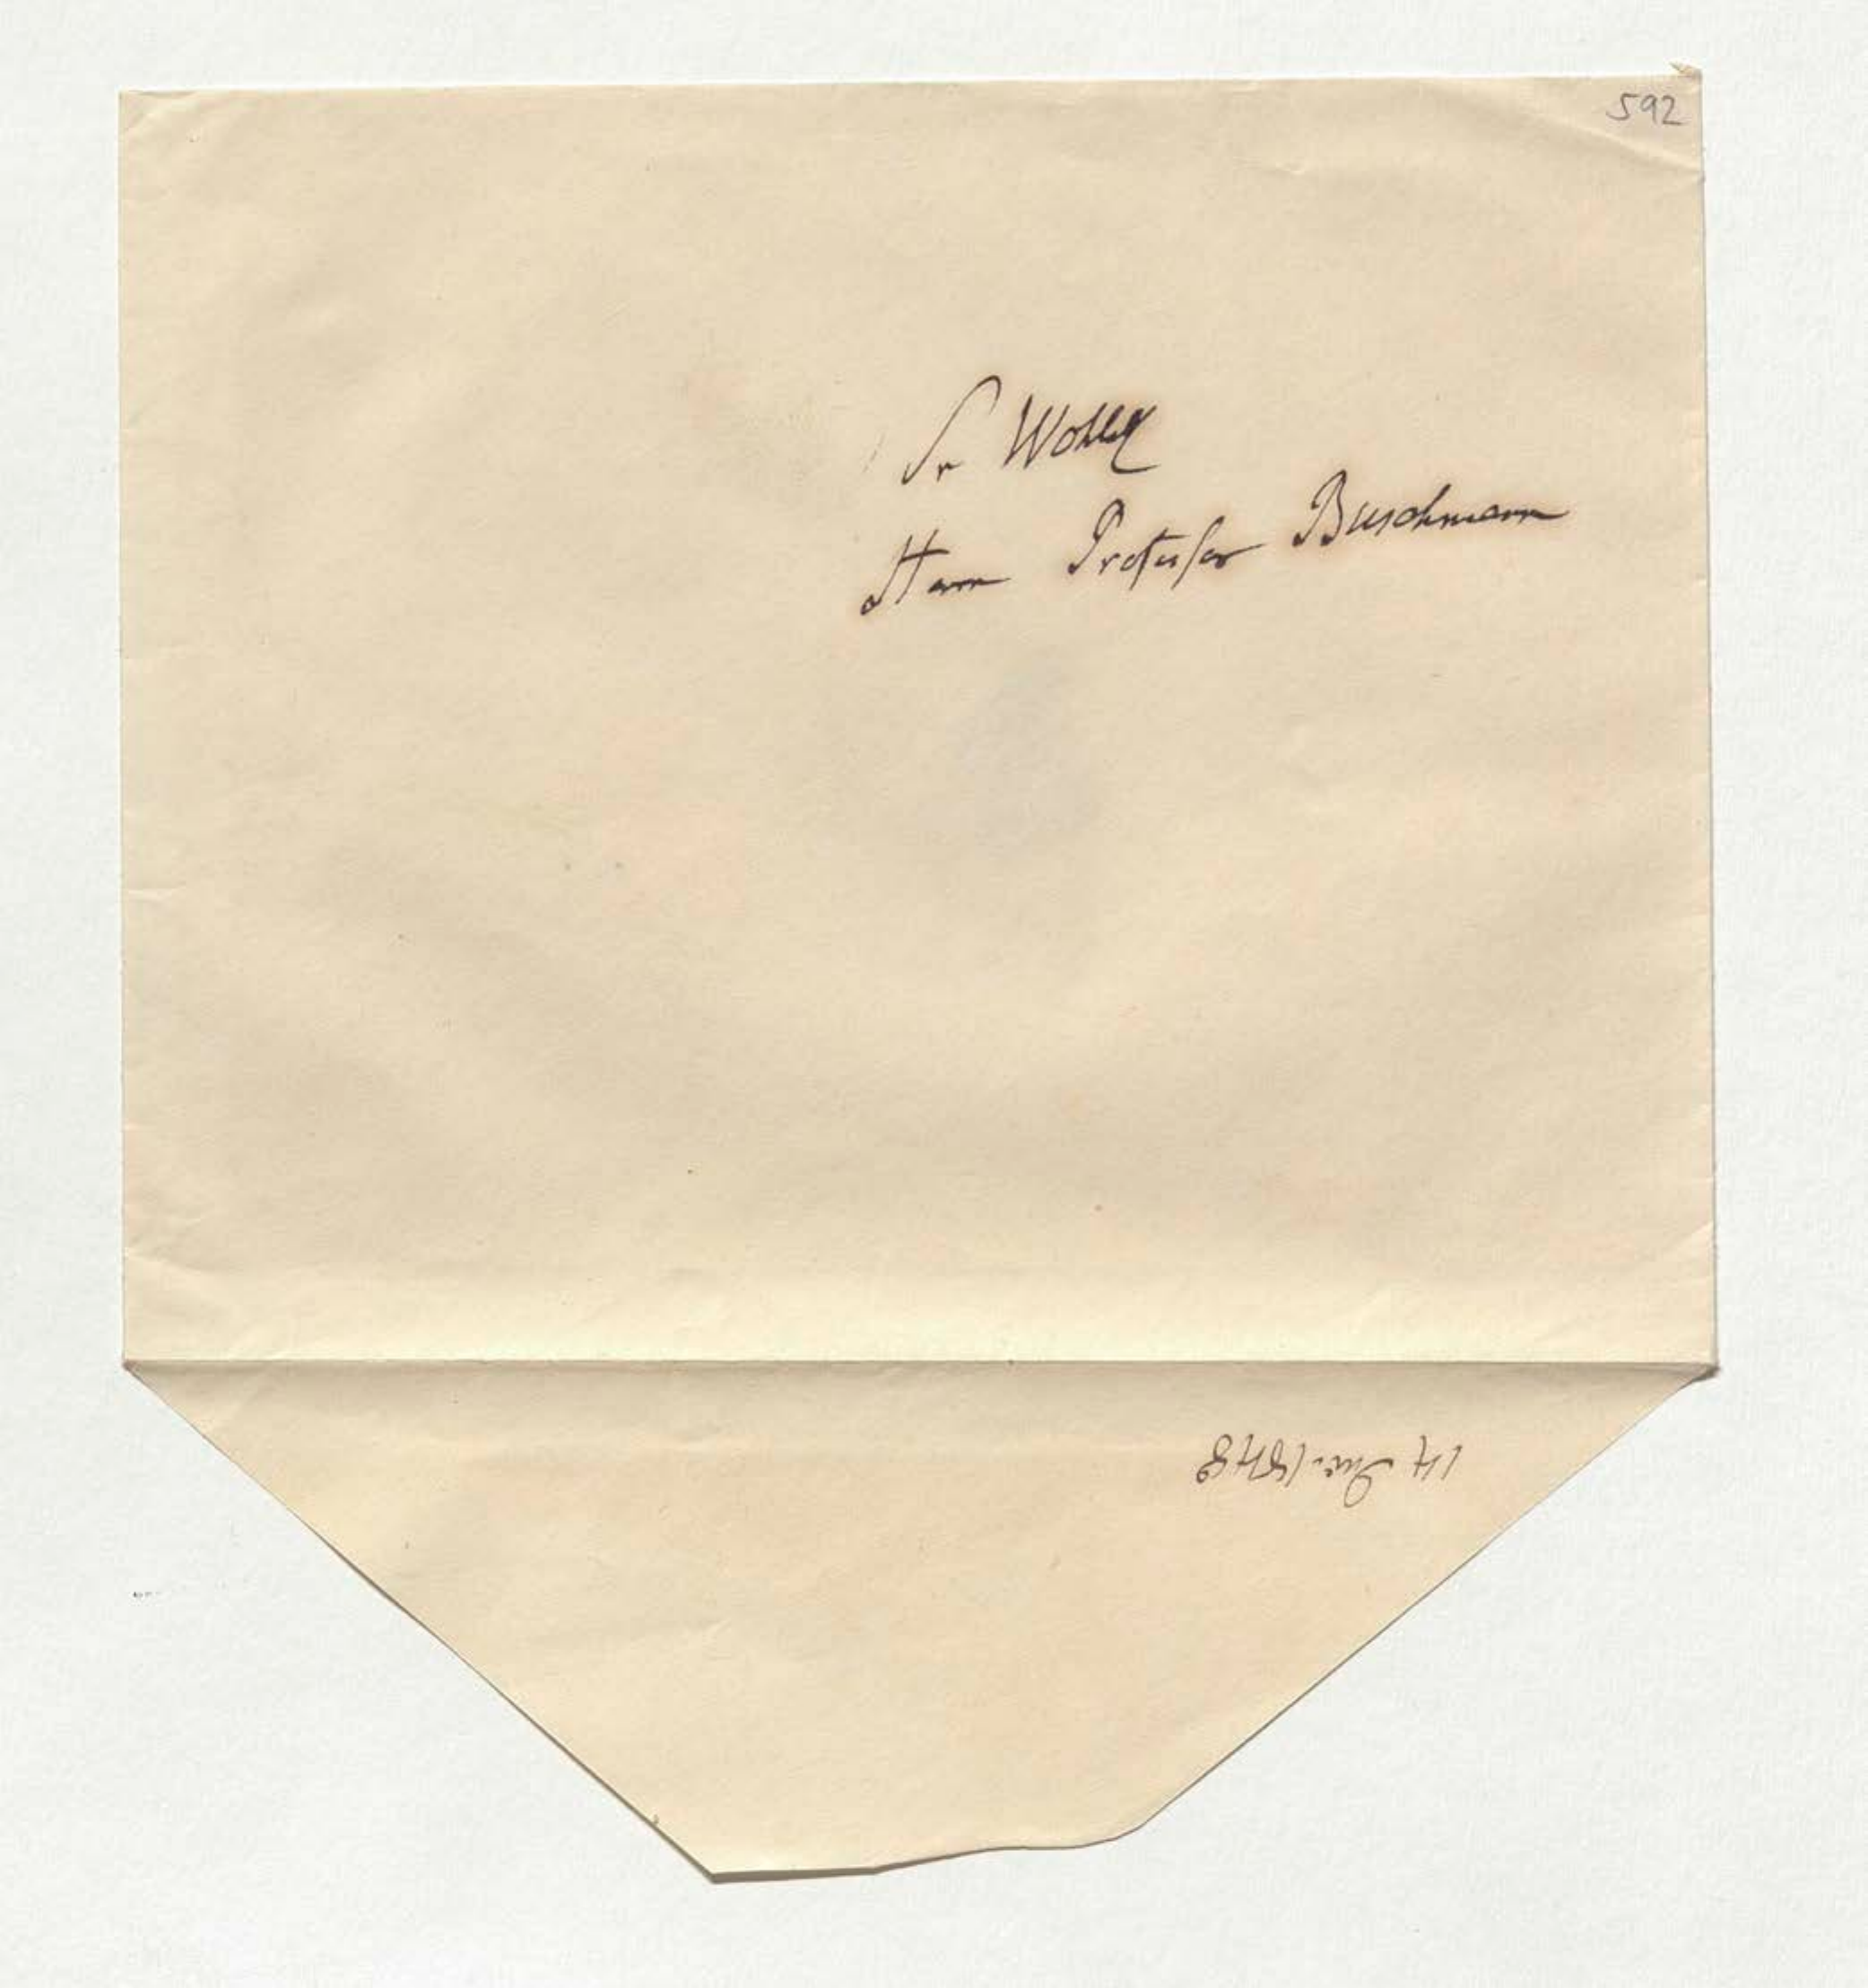 592
Sr Wohlg
Herrn Professor Buschmann
14 1848